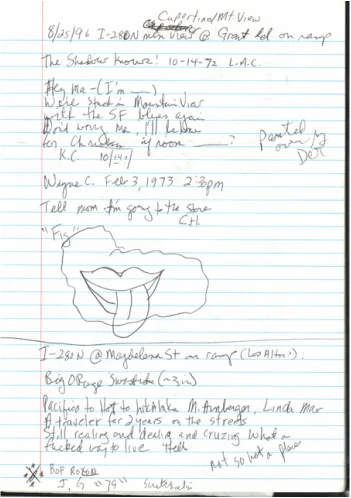 Cupertino/Mt. View
8/25/96 I-280N mtn View @ Grant Rd on ramp
The Shadow Knows! 10-14-72 L.A.C.
Hey Ma - (I'm ___)
We're stuck in Mountain View
with the SF blues again
Don't worry Me, I'll be home
for Christmas if room ___?
K.C. 10/14/
Painted
over by
Wayne C. Feb 3, 1973 2:30pm
Tell mom I'm going to the store
"Fig"
I-280N @ Magdelena St on ramp (Los Altos):
Big Orange (~3 in)
Pacifica to to M. Linda Mar
A traveler for 2 years on the streets
Still realing and dealing and cruzing What a
fucked way to live
not so hot a place
BOP